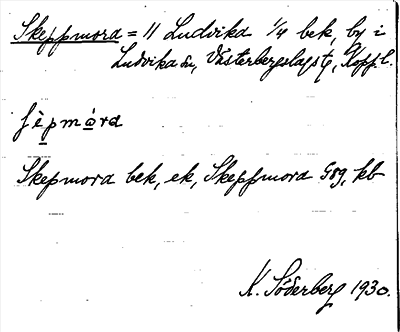 Skeppmora = 11 Ludvika 1/4 bek, by i
Ludvika sn, Västerbergslags tg, Kopp. l.
ʃèpmòra
Skepmora bek, ek, Skeppmora Gsg, kb
K. Söderberg 1930.